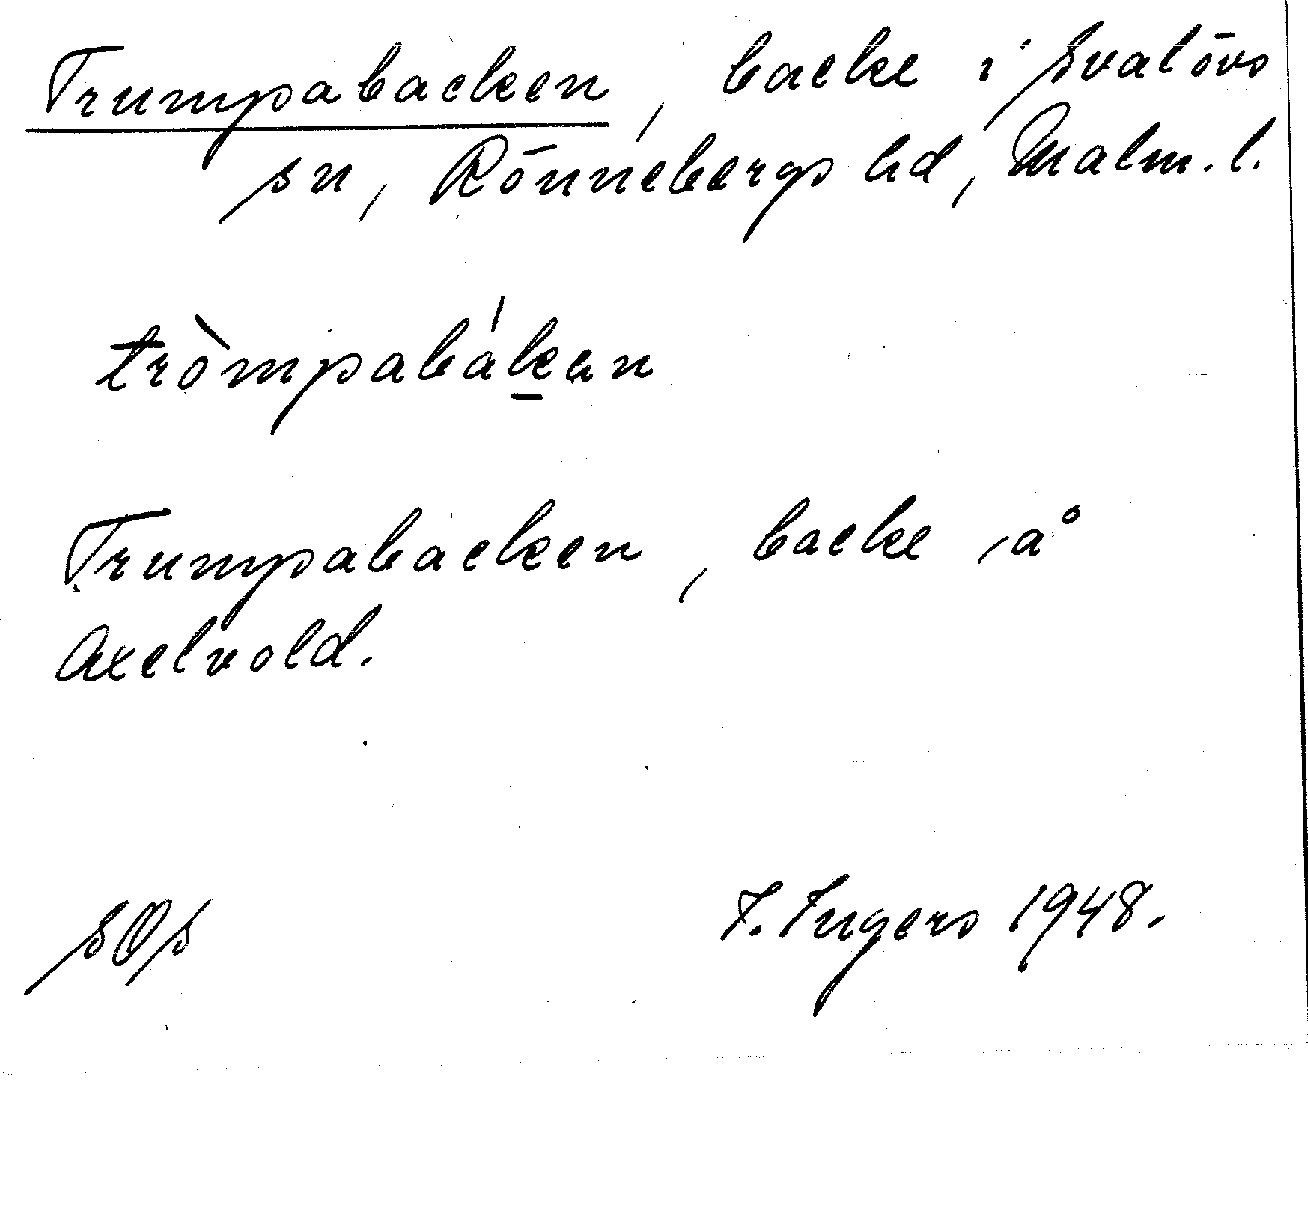 Trumpabacken, backe i Svalövs
sn, Rönnebergs hd, Malm. l.
tròmpabákan
Trumpabacken, backe å
Axelvold.
SOS
I. Ingers 1948.